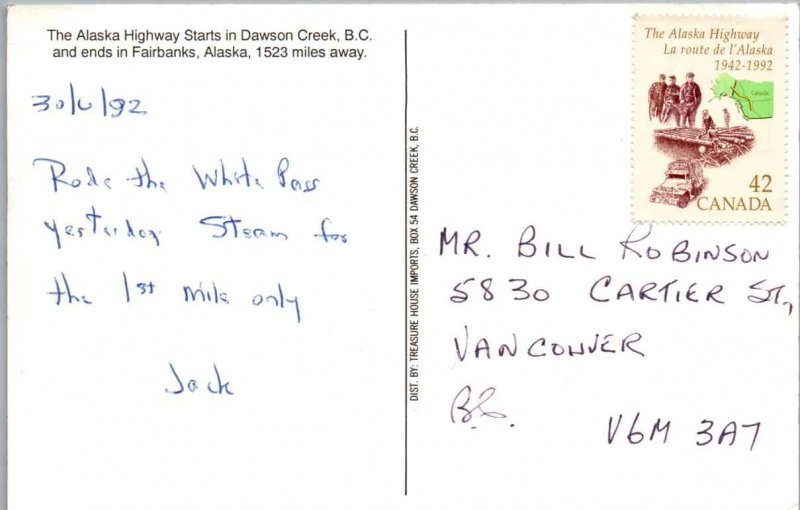 The Alaska Highway Starts in Dawson Creek, B.C.
and ends in Fairbanks, Alaska, 1523 miles away.
30/6/92
Rode the White Pass
yesterday Steam for
the 1st mile only
Jack
DIST. BY: TREASURE HOUSE IMPORTS, BOX 54 DAWSON CREEK, B.C.
The Alaska Highway
La route de l'Alaska
1942-1992
Canada
42
CANADA
MR. BILL ROBINSON
5830 CARTIER ST.,
VANCOUVER
B.C.
V6M 3A7